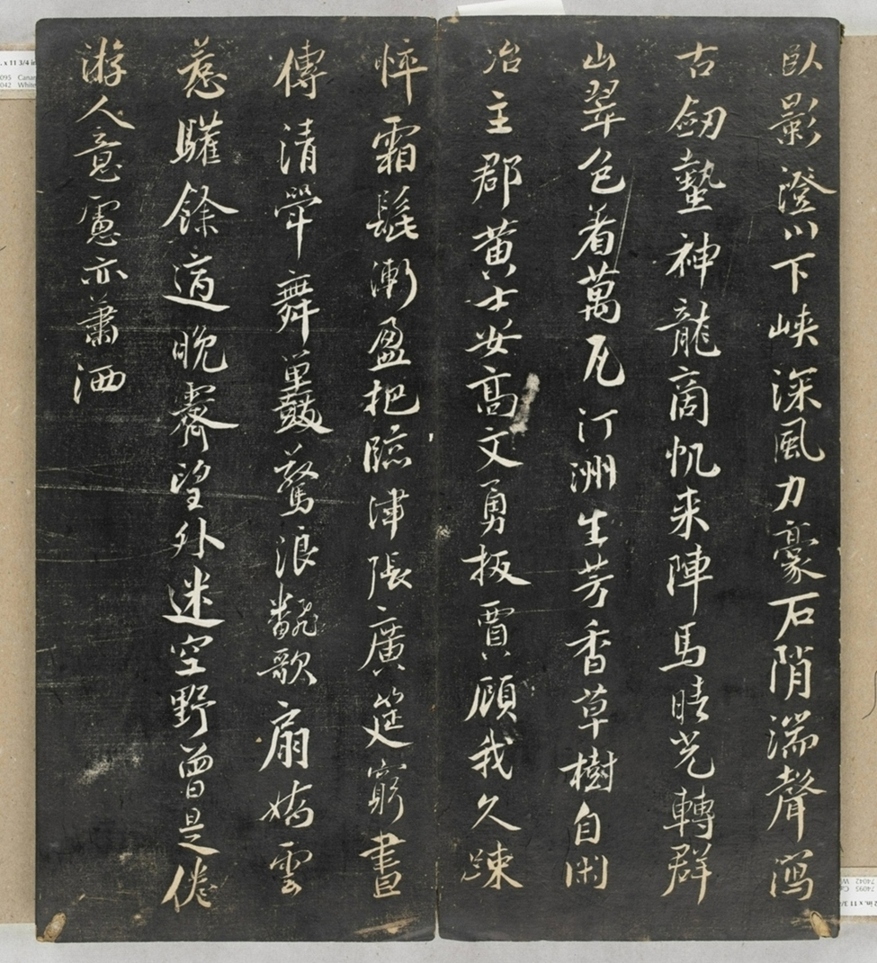 臥影澄川下峽深風力豪石陗湍聲瀉
古劒蟄神龍商帆来陣馬晴光轉群
山翠色着萬瓦汀洲生芳香草樹自閑
冶主郡黄士安高文勇扳賈顧我久疎
悴霜髭漸盈把臨津張廣筵窮晝
傳清斝舞鼉驚浪飜歌扇嬌雲
惹驩餘適晚霽望外迷空野曾是倦
游人意慮亦蕭洒